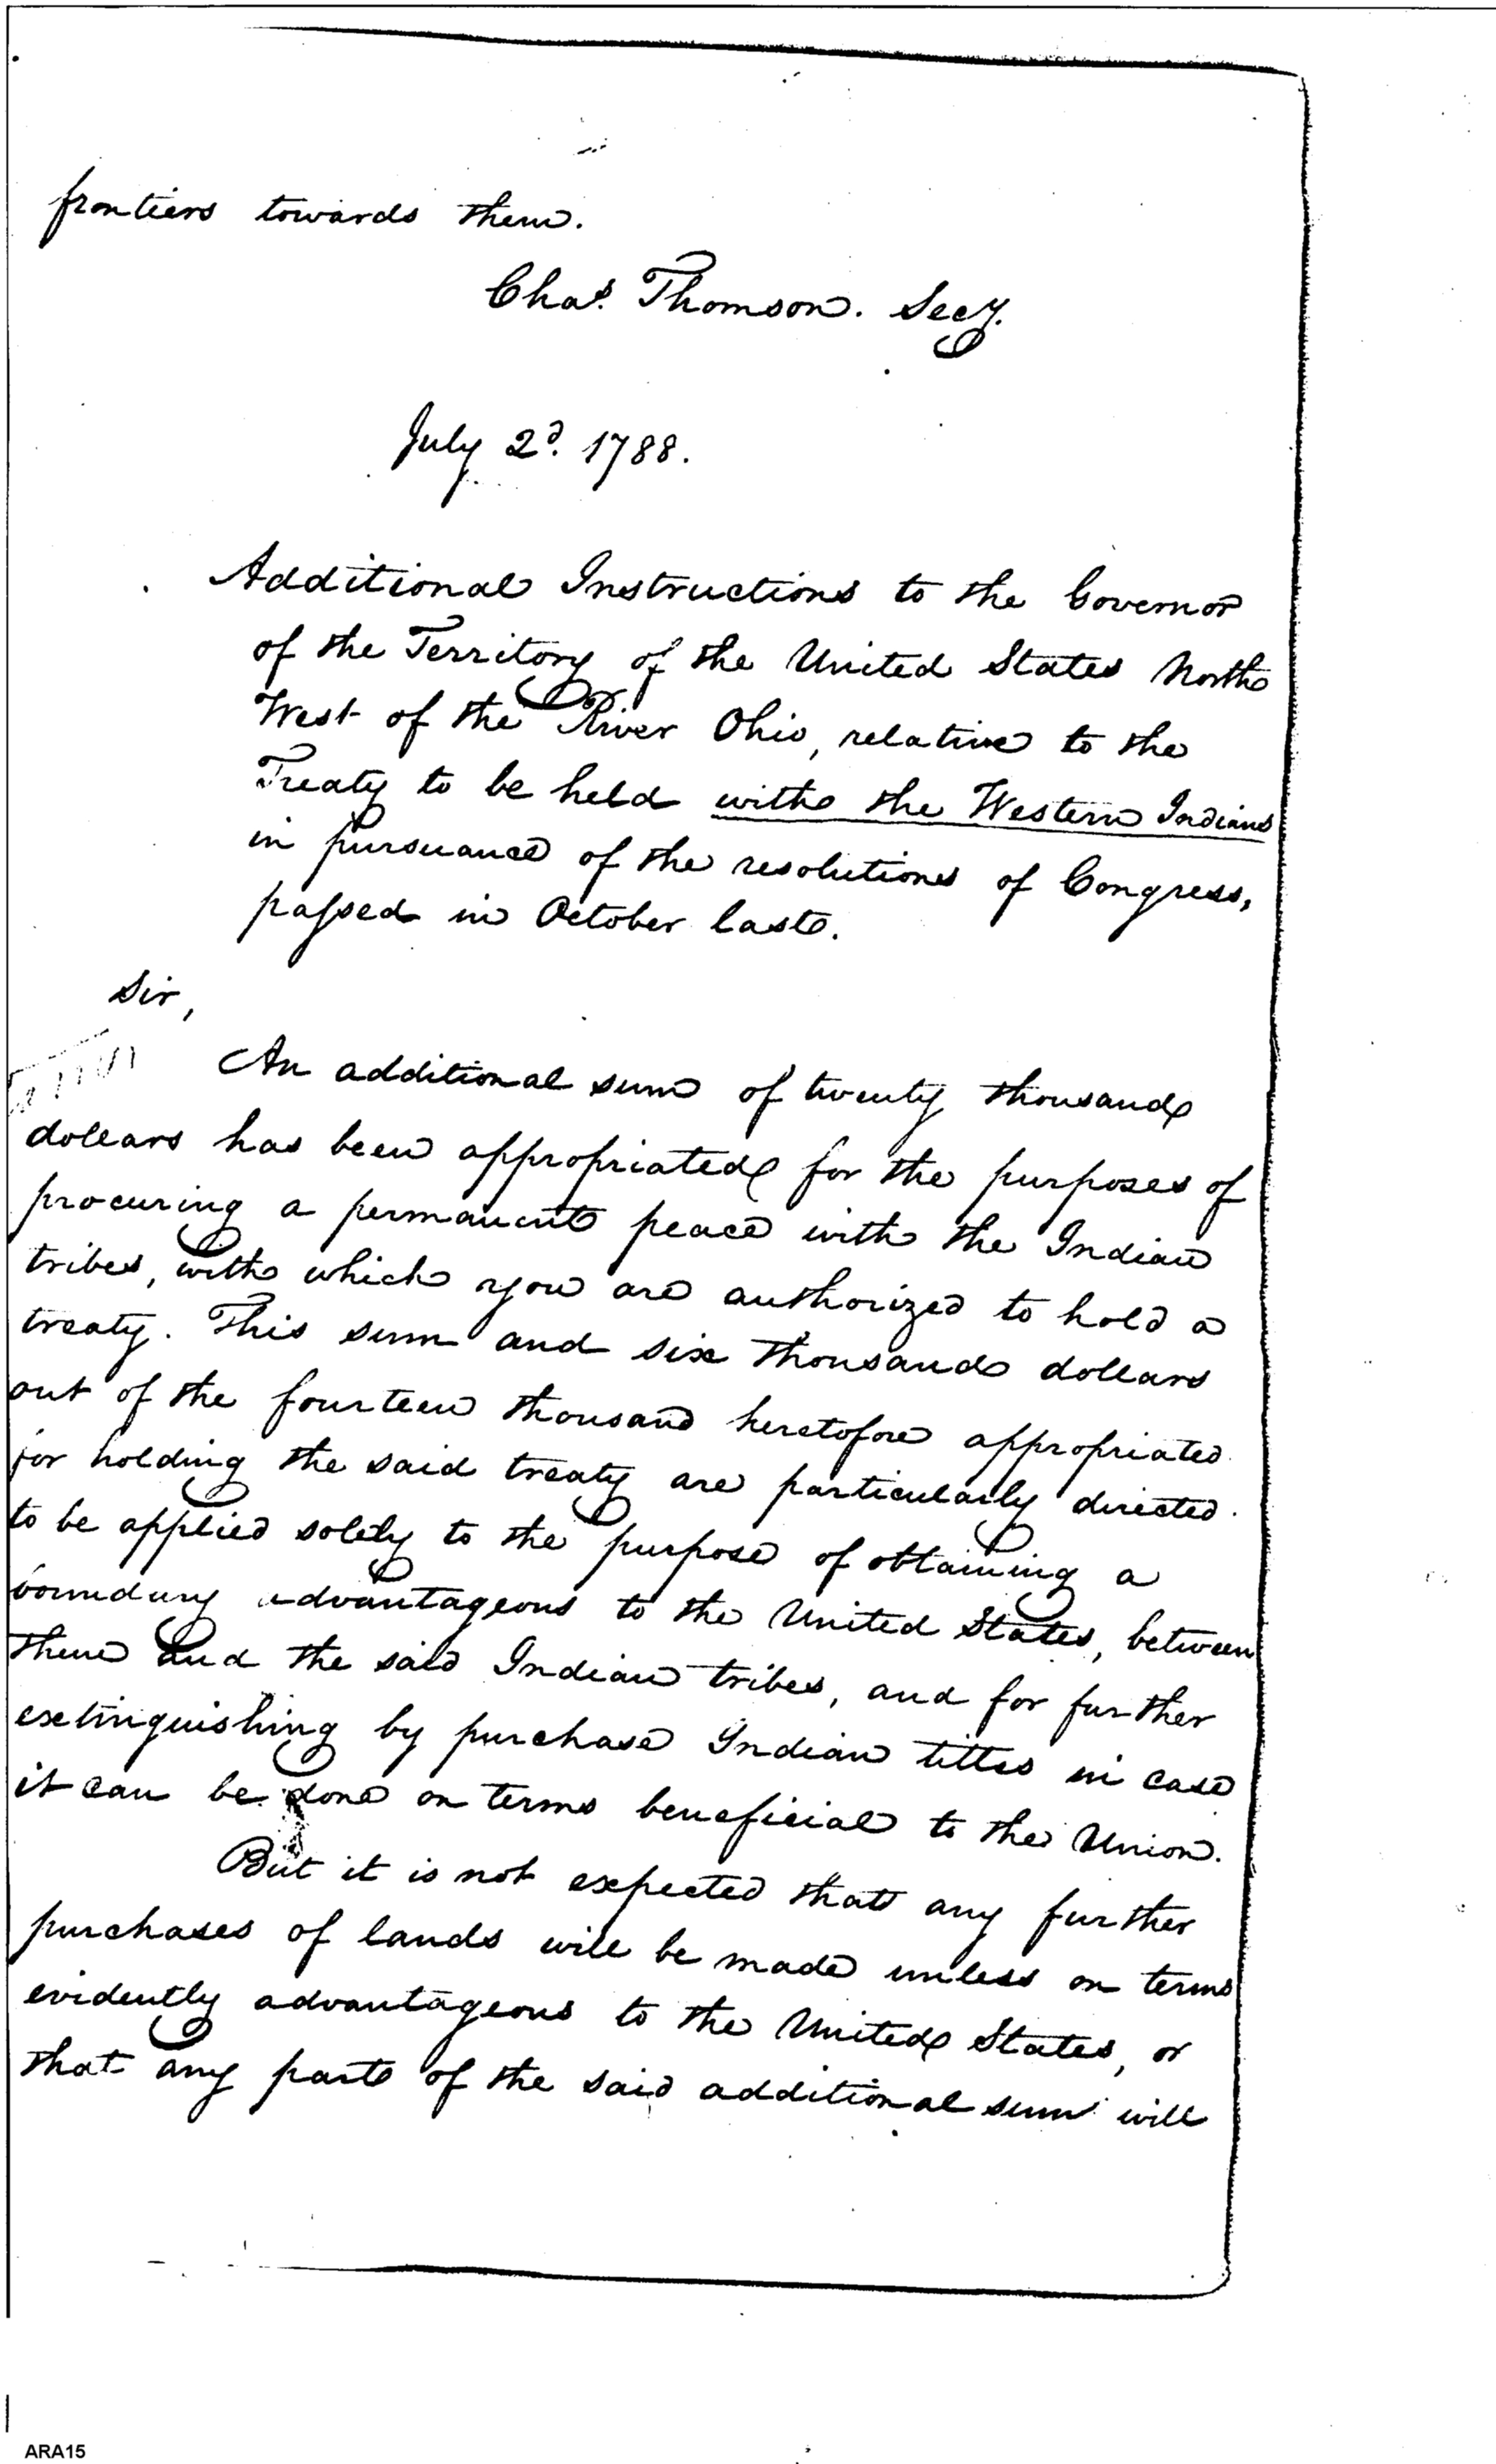 frontiers towards them.
Chas. Thomson. Secy.
July 2d. 1788.
Additional Instructions to the Governor
of the Territory of the United States North
West of the River Ohio, relative to the
Treaty to be held with the Western Indians
in pursuance of the resolutions of Congress,
passed in October last.
Sir,
An additional sum of twenty thousand
dollars has been appropriated for the purposes of
procuring a permanent peace with the Indian
tribes, with which you are authorized to hold a
treaty. This sum and six thousand dollars
out of the fourteen thousand heretofore appropriated
for holding the said treaty are particularly directed
to be applied solely to the purpose of obtaining a
boundary advantageous to the United States, between
them and the said Indian tribes, and for further
extinguishing by purchase Indian titles in case
it can be done on terms beneficial to the Union.
But it is not expected that any further
purchases of lands will be made unless on terms
evidently advantageous to the United States, or
that any part of the said additional sum will
ARA15